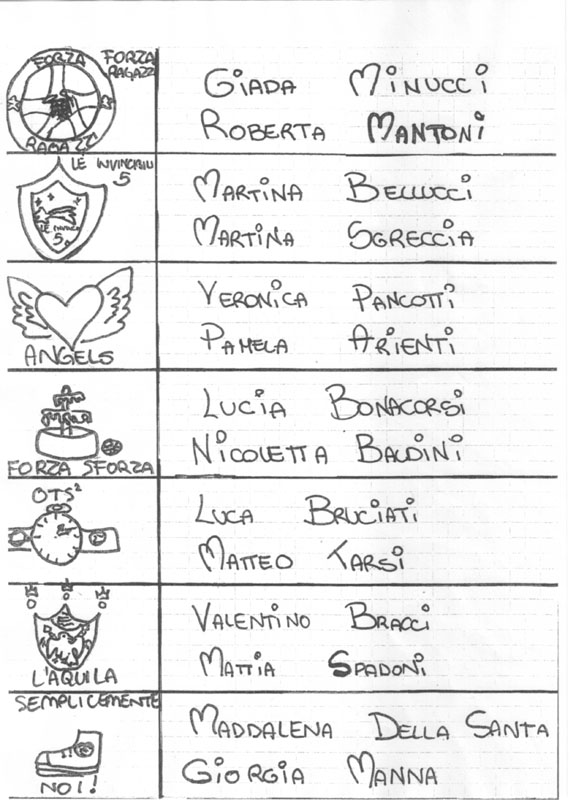 FORZA RAGAZZI
FORZA
RAGAZZI
GIADA MINUCCI
ROBERTA MANTONI
LE INVINCIBILI
5
5
MARTINA BELLUCCI
MARTINA SGRECCIA
ANGELS
VERONICA PANCOTTI
PAMELA ARIENTI
FORZA SFORZA
LUCIA BONACORSI
NICOLETTA BALDINI
OTS²
LUCA BRUCIATI
MATTEO TARSI
L'AQUILA
VALENTINO BRACCI
MATTIA SPADONI
SEMPLICEMENTE
NOI!
MADDALENA DELLA SANTA
GIORGIA MANNA